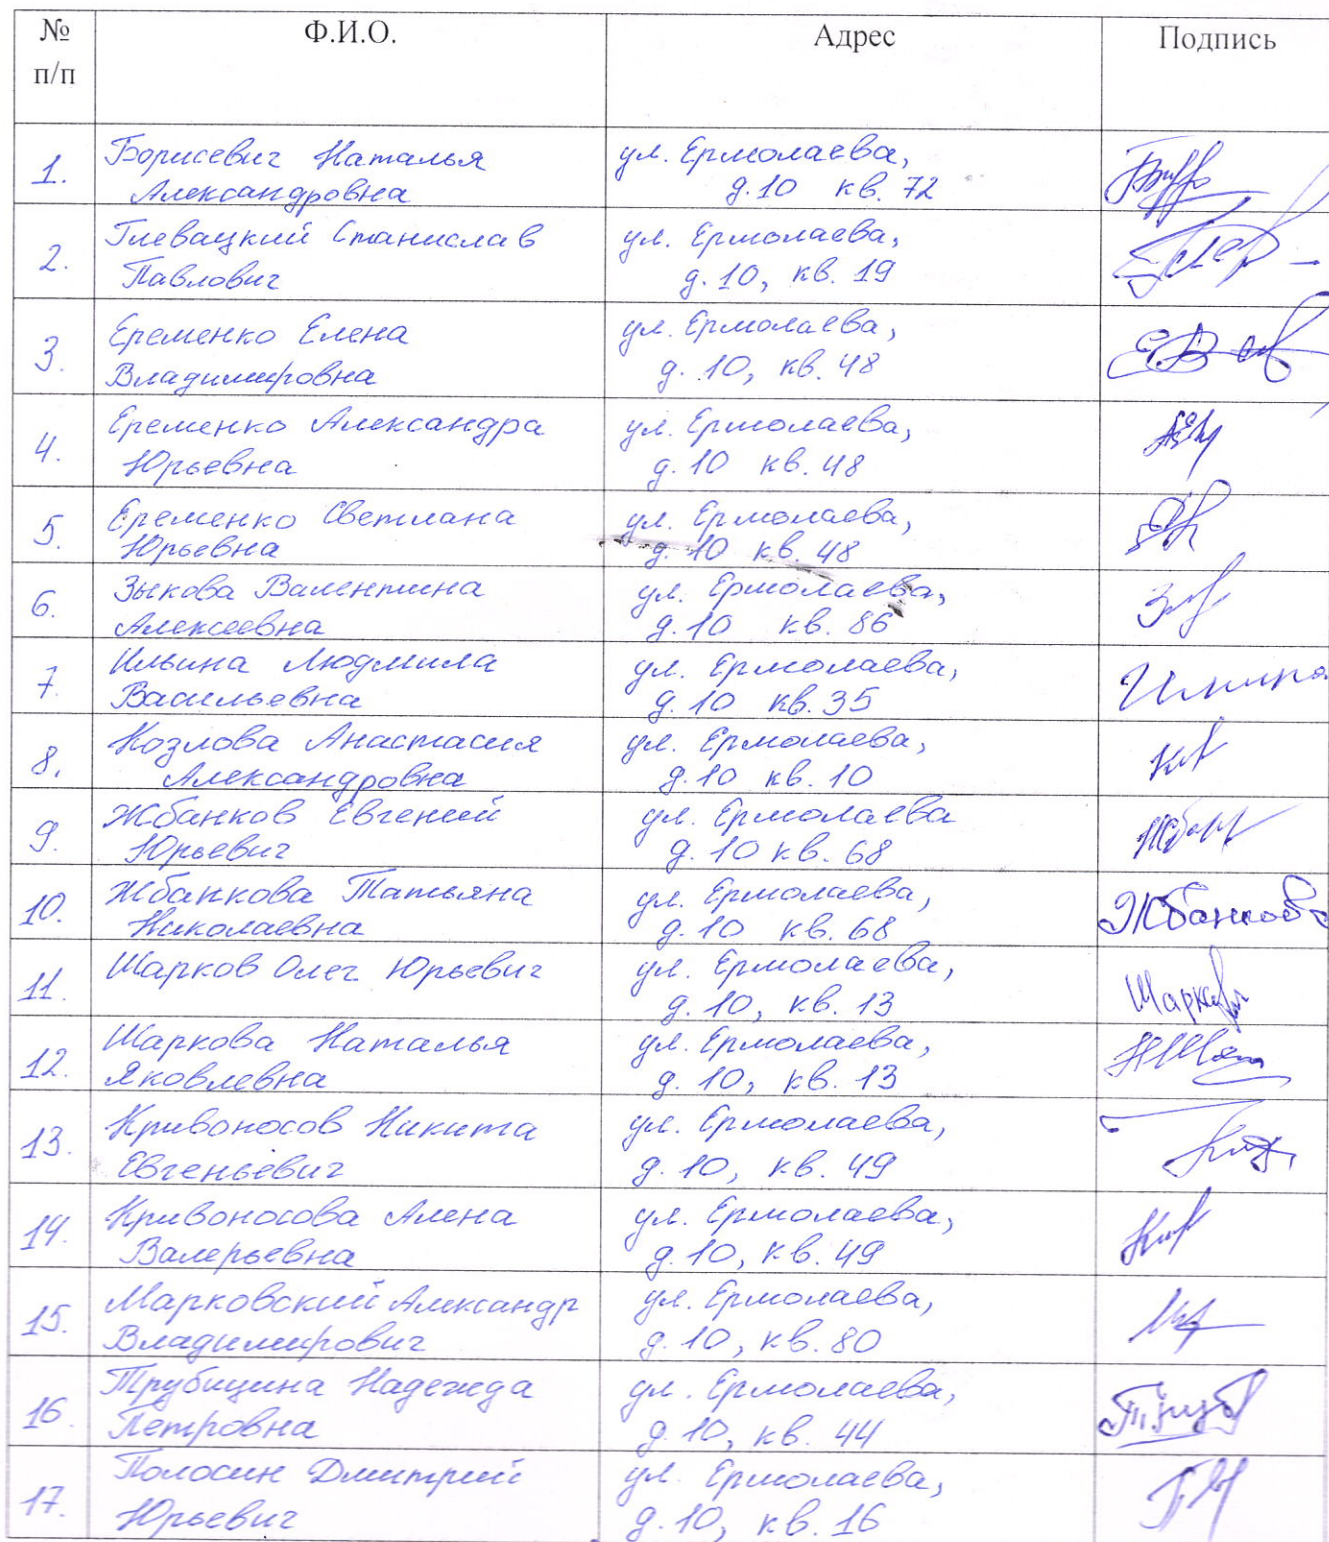 № п/п Ф.И.О. Адрес Подпись
1. Борисевич Наталья Александровна ул. Ермолаева, д.10 кв. 72
2. Глевацкий Станислав Павлович ул. Ермолаева, д.10, кв. 19
3. Еременко Елена Владимировна ул. Ермолаева, д.10, кв. 48
4. Еременко Александра Юрьевна ул. Ермолаева, д.10 кв. 48
5. Еременко Светлана Юрьевна ул. Ермолаева, д.10 кв. 48
6. Зыкова Валентина Алексеевна ул. Ермолаева, д.10 кв. 86
7. Ильина Людмила Васильевна ул. Ермолаева, д.10 кв. 35
8. Козлова Анастасия Александровна ул. Ермолаева, д.10 кв. 10
9. Жбанков Евгений Юрьевич ул. Ермолаева д.10 кв. 68
10. Жбанкова Татьяна Николаевна ул. Ермолаева, д.10 кв. 68 Жбанкова
11. Шарков Олег Юрьевич ул. Ермолаева, д.10, кв. 13
12. Шаркова Наталья Яковлевна ул. Ермолаева, д.10, кв. 13
13. Кривоносов Никита Евгеньевич ул. Ермолаева, д.10, кв. 49
14. Кривоносова Алена Валерьевна ул. Ермолаева, д.10, кв. 49
15. Марковский Александр Владимирович ул. Ермолаева, д.10, кв. 80
16. Трубицина Надежда Петровна ул. Ермолаева, д.10, кв. 44
17. Полосин Дмитрий Юрьевич ул. Ермолаева, д.10, кв. 16